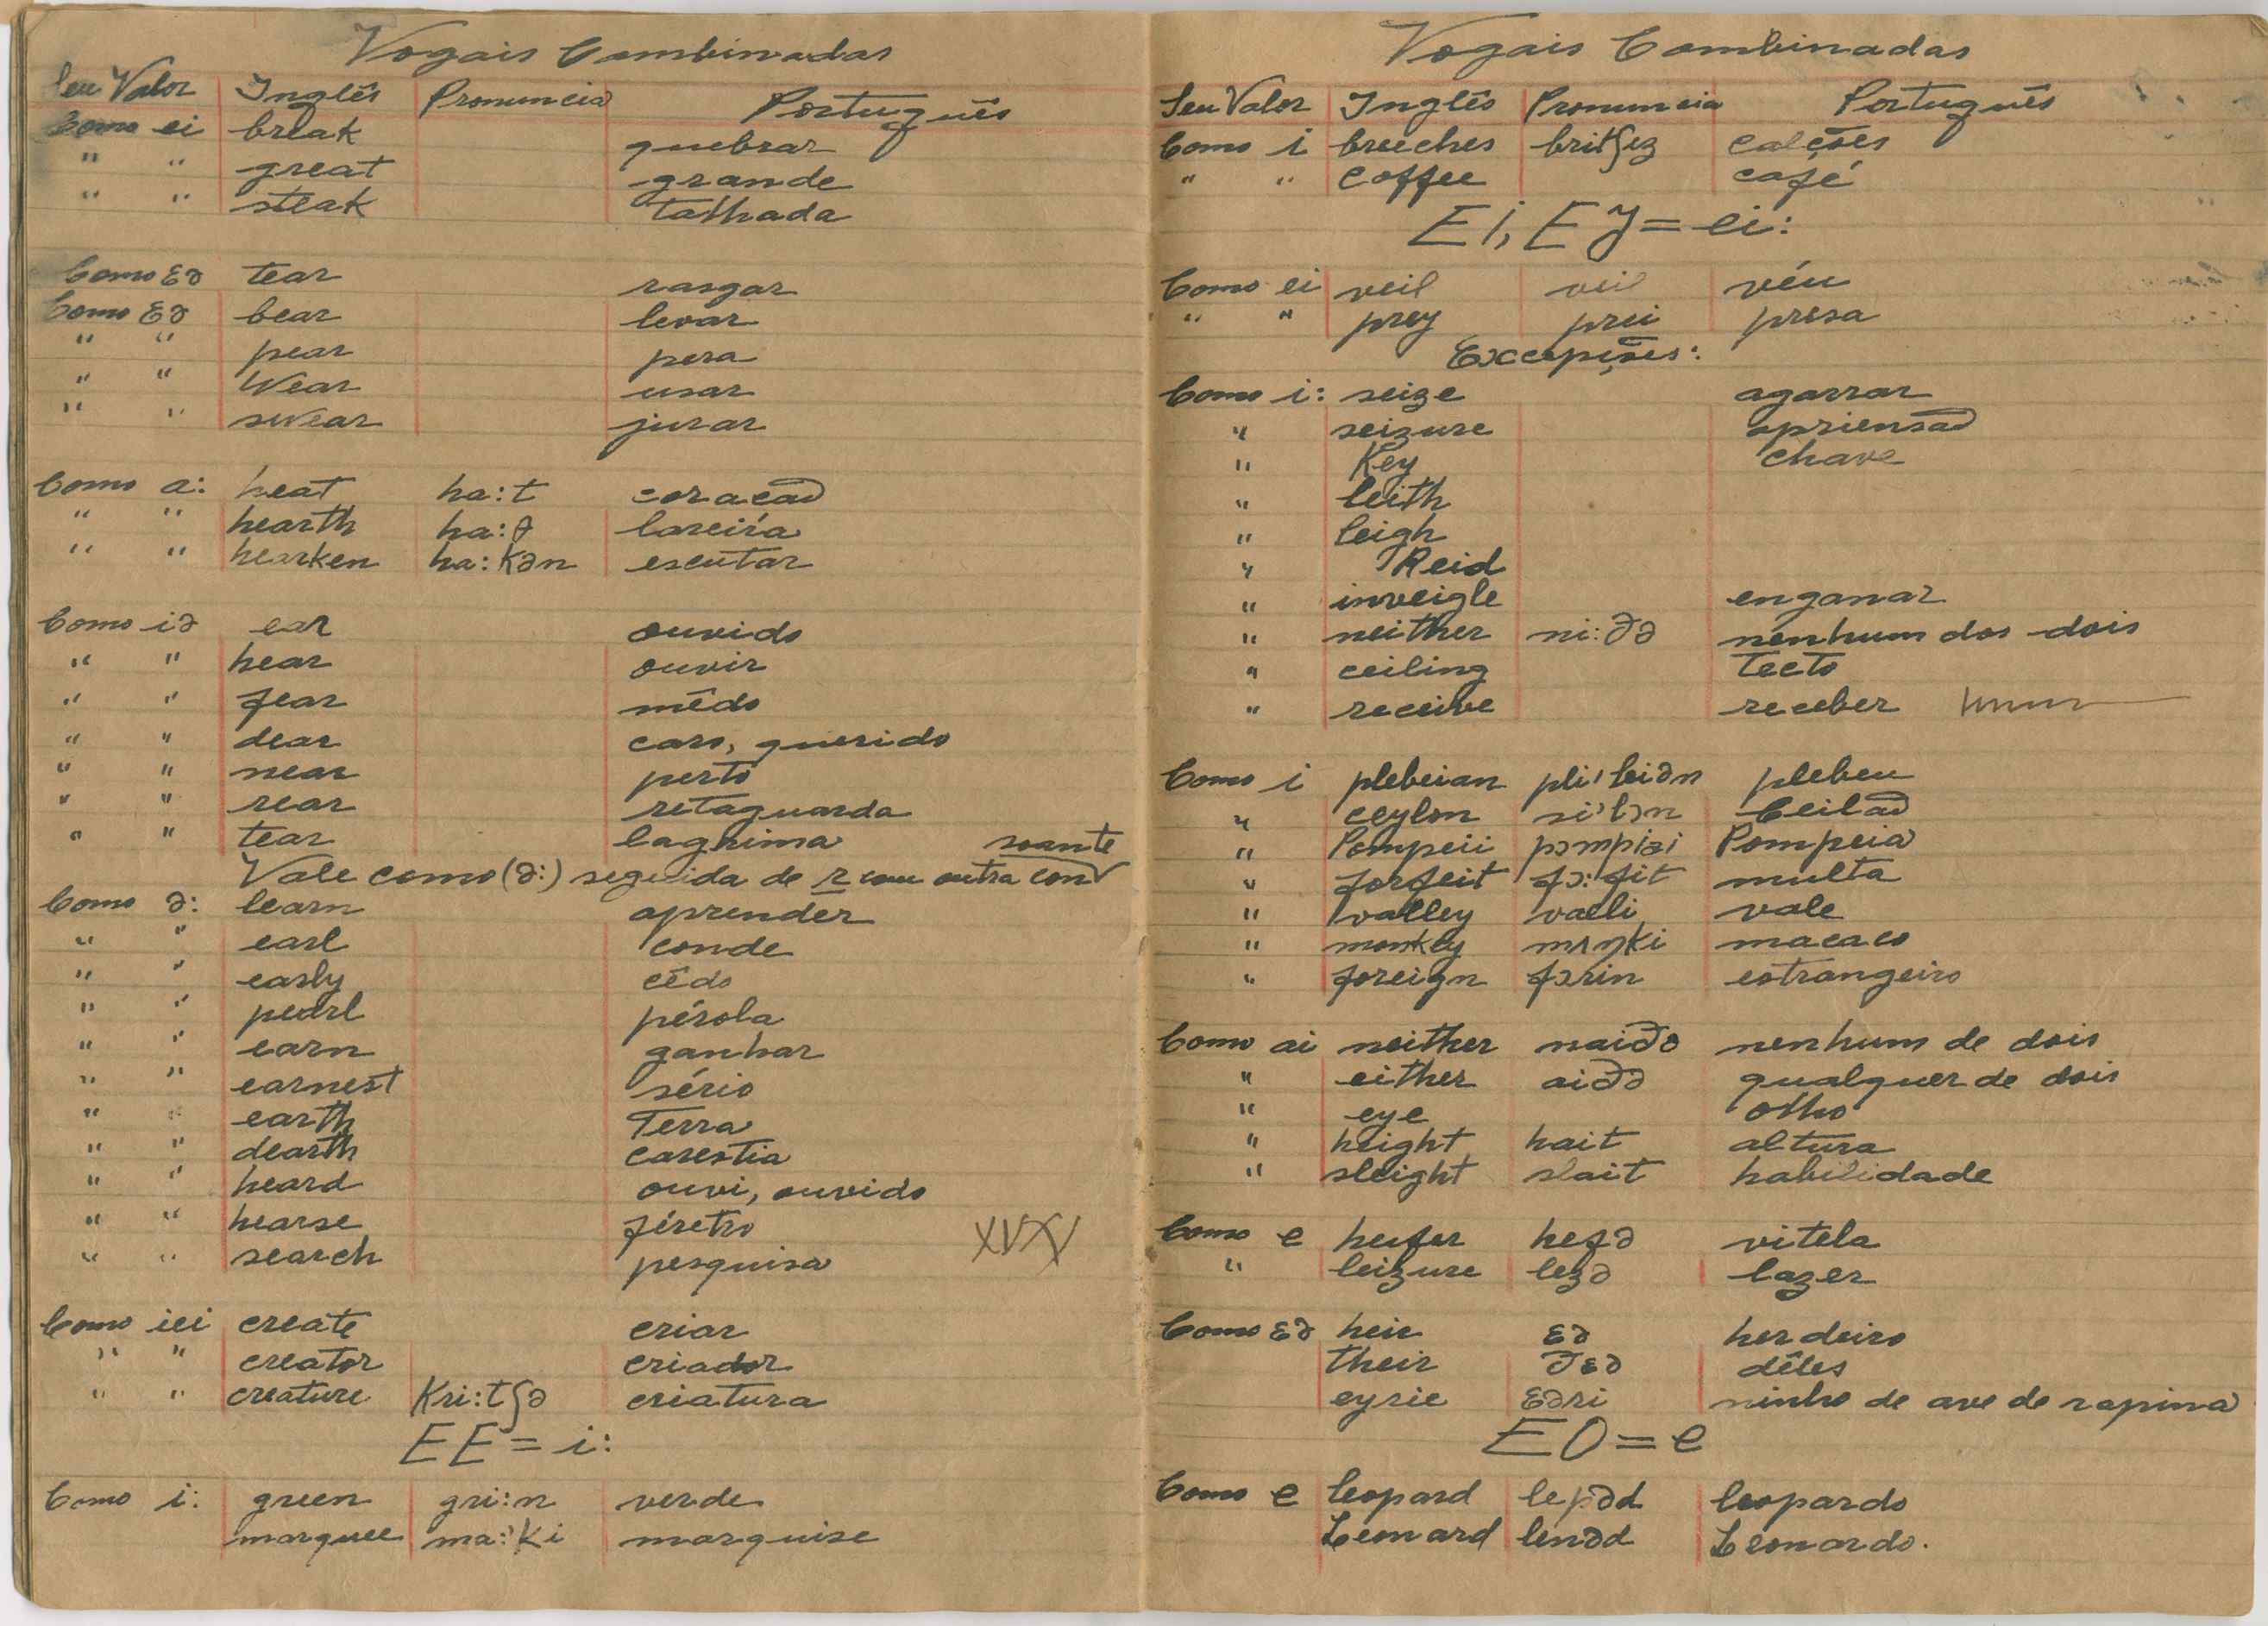 Vogais Combinadas
Seu Valor Inglês Pronuncia Português
Como ei break quebrar
" " great grande
" " steak talhada
Como ɛə tear rasgar
Como ɛə bear levar
" " pear pera
" " Wear usar
" " swear jurar
Como a: heat ha:t coracaõ
" " hearth ha:θ lareira
" " hearken ha:kən escutar
Como iə ear ouvido
" " hear ouvir
" " fear mêdo
" " dear caro, querido
" " near perto
" " rear retaguarda
" " tear lagrima
soante
Vale como (ə:) seguida de r com outra con
Como ə: learn aprender
" " earl conde
" " early cêdo
" " pearl pérola
" " earn ganhar
" " earnest sério
" " earth Terra
" " dearth carestia
" " heard ouvi, ouvido
" " hearse féretro
" " search pesquisa
Como iei create criar
" " creator criador
" " creature Kri:tʃə criatura
EE = i:
Como i: green gri:n verde
marquee ma:'ki marquise
Vogais Combinadas
Seu Valor Inglês Pronuncia Português
Como i breeches britʃez calções
" " coffee café
Ei, Ey = ei:
Como ei veil veil véu
" " prey prei presa
Excepções:
Como i: seize agarrar
" seizure apriensaõ
" Key chave
" leith
" leigh
" Reid
" inveigle enganar
" neither ni:ðə nenhum dos dois
" ceiling tecto
" receive receber
Como i plebeian pli'biən plebeu
" ceylon si'lɔn Ceilaõ
" Pompeii pɔmpiai Pompeia
" forfeit fɔ:fit multa
" valley vaeli vale
" monkey mʌŋki macaco
" foreign fɔrin estrangeiro
Como ai neither naiðə nenhum de dois
" either aiðə qualquer de dois
" eye olho
" height hait altura
" sleight slait habilidade
Como e heifer hefə vitela
" leizure lezə lazer
Como ɛə heir ɛə herdeiro
their ðɛə dêles
eyrie ɛəri ninho de ave de rapina
EO = e
Como e leopard lepəd leopardo
Leonard lenəd Leonardo.